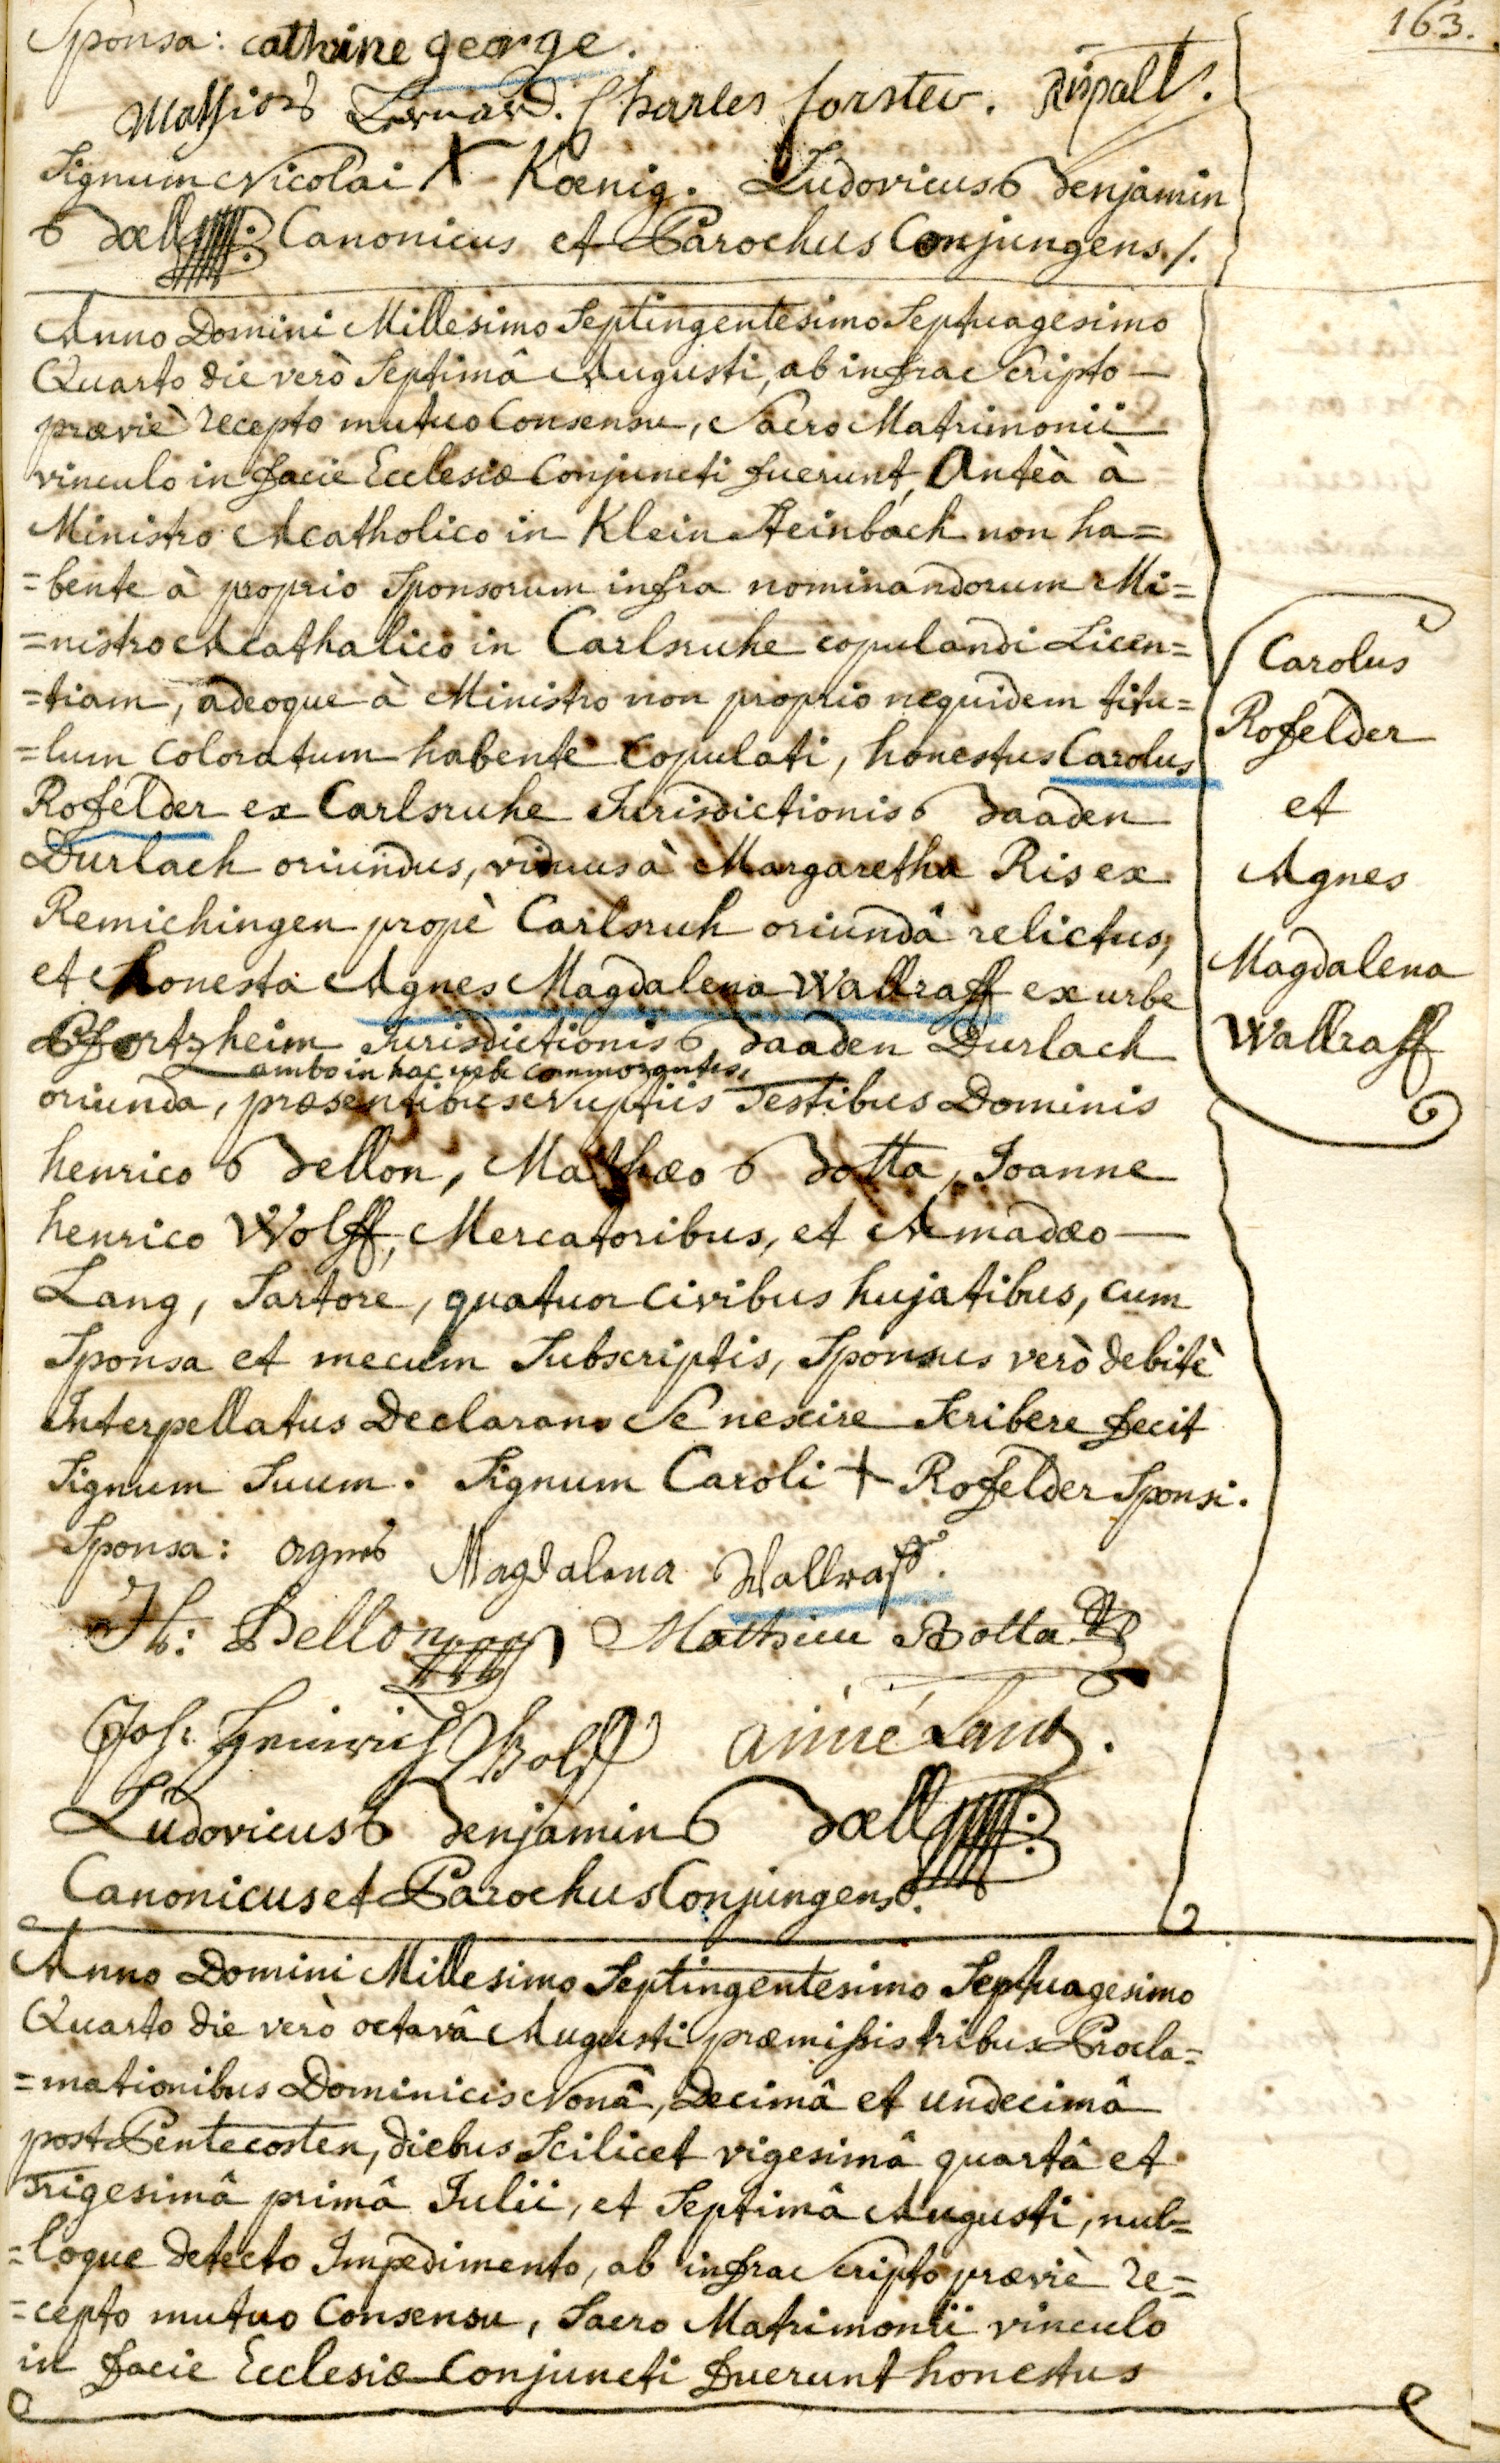 163.
Sponsa: cathrine george.
Mathias Bernard. Charles forster. Rispalts.
Signum Nicolai X Kœnig. Ludovicus Benjamin
Bœll Canonicus et Parochus Conjungens./.
Anno Domini Millesimo Septingentesimo Septuagesimo
Quarto die verò Septimâ Augusti, ab infra Scripto
præviè recepto mutuo Consensu, Sacro Matrimonii
vinculo in facie Ecclesiæ Conjuncti fuerunt, Anteà à
Ministro Acatholico in Klein Steinbach non ha=
=bente à proprio Sponsorum infra nominandorum Mi=
=nistro Acathalico in Carlsruhe copulandi Licen=
=tiam, adeoque à Ministro non proprio nequidem titu=
=lum coloratum habente copulati, honestus Carolus
Rofelder ex Carlsruhe Jurisdictionis Baaden
Durlach oriundus, viduus à Margaretha Ris ex
Remichingen propè Carlsruh oriundâ relictus,
et honesta Agnes Magdalena Wallraff ex urbe
Pfortzheim Jurisdictionis Baaden Durlach
ambo in hac urbe commorantes,
oriunda, præsentibus Nuptiis Testibus Dominis
henrico Bellon, Mathæo Botta, Joanne
henrico Wolff, Mercatoribus, et Amadæo
Lang, Sartore, quatuor Civibus hujatibus, cum
Sponsa et mecum Subscriptis, Sponsus verò debitè
Interpellatus Declarans Se nescire Scribere fecit
Signum Suum. Signum Caroli + Rofelder Sponsi.
Sponsa: agnes Magdalena Wallraff.
H: Bellon Mathieu Botta
Joh: Heinrich Wolff aimé Lang.
Ludovicus Benjamin Bœll
Canonicus et Parochus Conjungens.
Carolus
Rofelder
et
Agnes
Magdalena
Wallraff
Anno Domini Millesimo Septingentesimo Septuagesimo
Quarto die verò octavâ Augusti præmissis tribus Procla=
=mationibus Dominicis Nonâ, Decimâ et undecimâ
post Pentecosten, diebus Scilicet vigesimâ quartâ et
Trigesimâ primâ Julii, et Septimâ Augusti, nul=
=loque detecto Impedimento, ab infra Scripto præviè re=
=cepto mutuo Consensu, Sacro Matrimonii vinculo
in facie Ecclesiæ Conjuncti fuerunt honestus